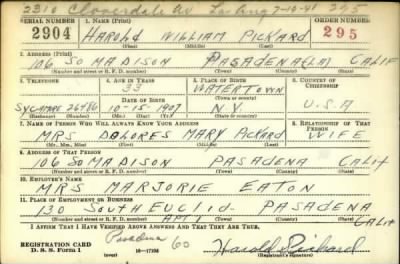 2310 Cloverdale Av Los Ang 7-10-41 295
SERIAL NUMBER 1. NAME (Print) ORDER NUMBER
2904 HAROLD WILLIAM PICKARD 295
(First) (Middle) (Last)
2. ADDRESS (Print)
106 SO MADISON PASADENA (LA) CALIF
(Number and street or R. F. D. number) (Town) (County) (State)
3. TELEPHONE 4. AGE IN YEARS 5. PLACE OF BIRTH 6. COUNTRY OF CITIZENSHIP
33 WATERTOWN
DATE OF BIRTH (Town or county)
SYCAMORE 26786 10-15-1907 N.Y. U.S.A
(Exchange) (Number) (Mo.) (Day) (Yr.) (State or country)
7. NAME OF PERSON WHO WILL ALWAYS KNOW YOUR ADDRESS 8. RELATIONSHIP OF THAT PERSON
MRS DOLORES MARY PICKARD WIFE
(Mr., Mrs., Miss) (First) (Middle) (Last)
9. ADDRESS OF THAT PERSON
106 SO MADISON PASADENA CALIF
(Number and street or R. F. D. number) (Town) (County) (State)
10. EMPLOYER'S NAME
MRS MARJORIE EATON
11. PLACE OF EMPLOYMENT OR BUSINESS
130 SOUTH EUCLID PASADENA
APT 1 CALIF
(Number and street or R. F. D. number) (Town) (County) (State)
I AFFIRM THAT I HAVE VERIFIED ABOVE ANSWERS AND THAT THEY ARE TRUE.
REGISTRATION CARD Pasadena 60 Harold Pickard
D. S. S. Form 1 (over) (Registrant's signature)